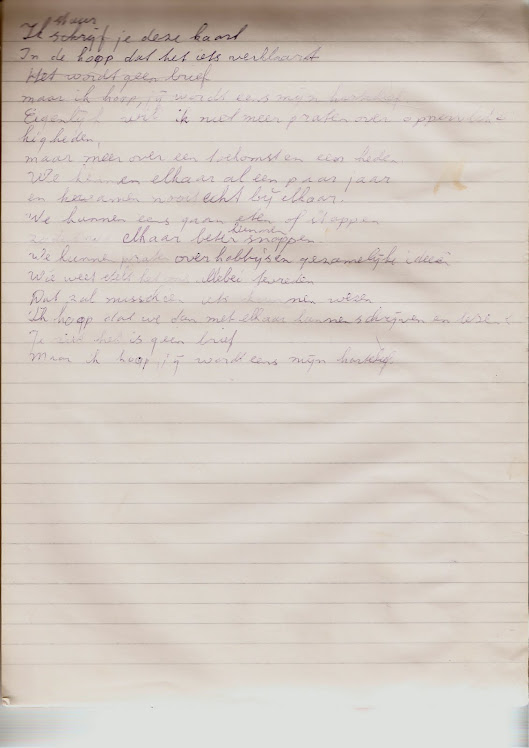 stuur
Ik schrijf je deze kaart
In de hoop dat het iets verklaart
Het wordt geen brief
maar ik hoop, jij wordt eens mijn hartedief.
Eigenlijk ik niet meer praten over oppervlak-
kigheden,
maar meer over een toekomst en een heden.
We kennen elkaar al een paar jaar
en kwamen nooit echt bij elkaar.
We kunnen eens gaan eten of stappen
kunnen
elkaar beter snappen
We kunnen praten over hobby's en gezamelijke ideeën
Wie weet allebei tevreden
Dat zal misschien iets kunnen wezen
Ik hoop dat we dan met elkaar kunnen schrijven en
Je ziet het is geen brief
Maar ik hoop, jij wordt eens mijn hartedief.